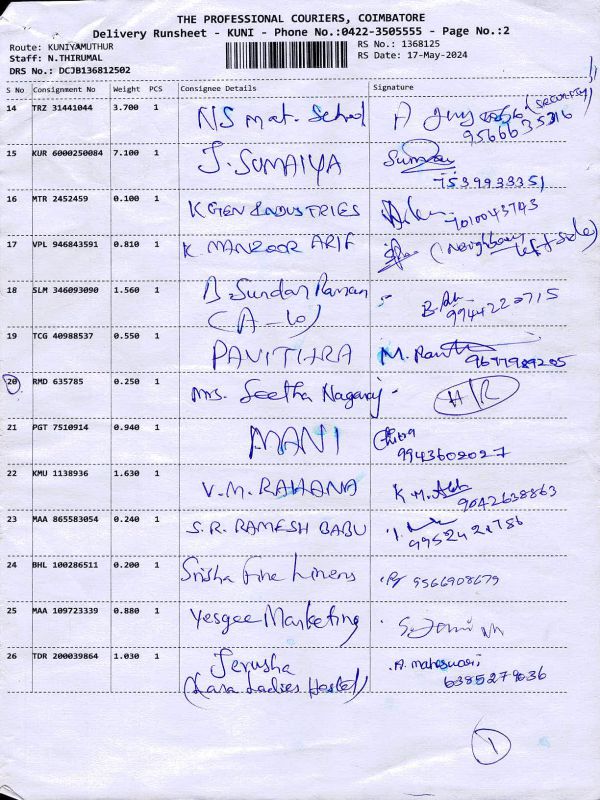 THE PROFESSIONAL COURIERS, COIMBATORE
Delivery Runsheet - KUNI - Phone No.:0422-3505555 - Page No.:2
Route: KUNIYAMUTHUR
Staff: N.THIRUMAL
DRS No.: DCJB136812502
RS No.: 1368125
RS Date: 17-May-2024
S No Consignment No Weight PCS Consignee Details Signature
14 TRZ 31441044 3.700 1 NS mat. School (security)
9566635316
15 KUR 6000250084 7.100 1 J. SUMAIYA
7539933351
16 MTR 2452459 0.100 1 K GEN INDUSTRIES
7010043743
17 VPL 946843591 0.810 1 K MANZOOR ARIF (Neighbour
left side)
18 SLM 346093090 1.560 1 B. Sundar Raman
(A-10) 9944220715
19 TCG 40988537 0.550 1 PAVITHRA M.
9677989205
20 RMD 635785 0.250 1 Mrs. Seetha Nagaraj - H/R
21 PGT 7510914 0.940 1 MANI
9943602027
22 KMU 1138936 1.630 1 V.M. RAHANA K.M.
9042638863
23 MAA 865583054 0.240 1 S.R. RAMESH BABU
9952421756
24 BHL 100286511 0.200 1 Srisha Fine Linens 9566908679
25 MAA 109723339 0.880 1 Yesgee Marketing
26 TDR 200039864 1.030 1 Jerusha A. maheswari
(Lara Ladies Hostel) 6385279036
1